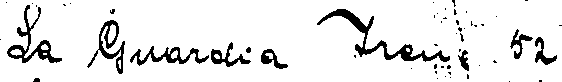 La Guardia Irene 52